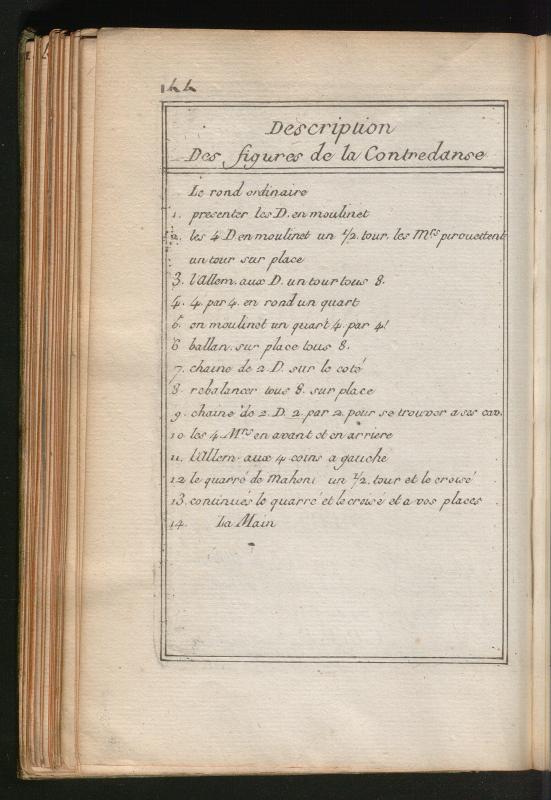 144
Description
Des figures de la Contredanse
Le rond ordinaire
1. presenter les D. en moulinet
2. les 4 D en moulinet un 1/2 tour. les Mrs pirouettent
un tour sur place
3. l'Allem. aux D. un tour tous 8.
4. 4. par 4. en rond un quart
5. en moulinet un quart 4. par 4.
6 ballan. sur place tous 8.
7. chaine de 2 D. sur le coté
8. rebalancer tous 8. sur place
9. chaine de 2. D. 2. par 2. pour se trouver a ses cav.
10. les 4 Mrs en avant et en arriere
11. l'Allem. aux 4 coins a gauche
12 le quarré de Mahoni un 1/2. tour et le croisé
13. continués le quarré et le croisé et a vos places
14. La Main